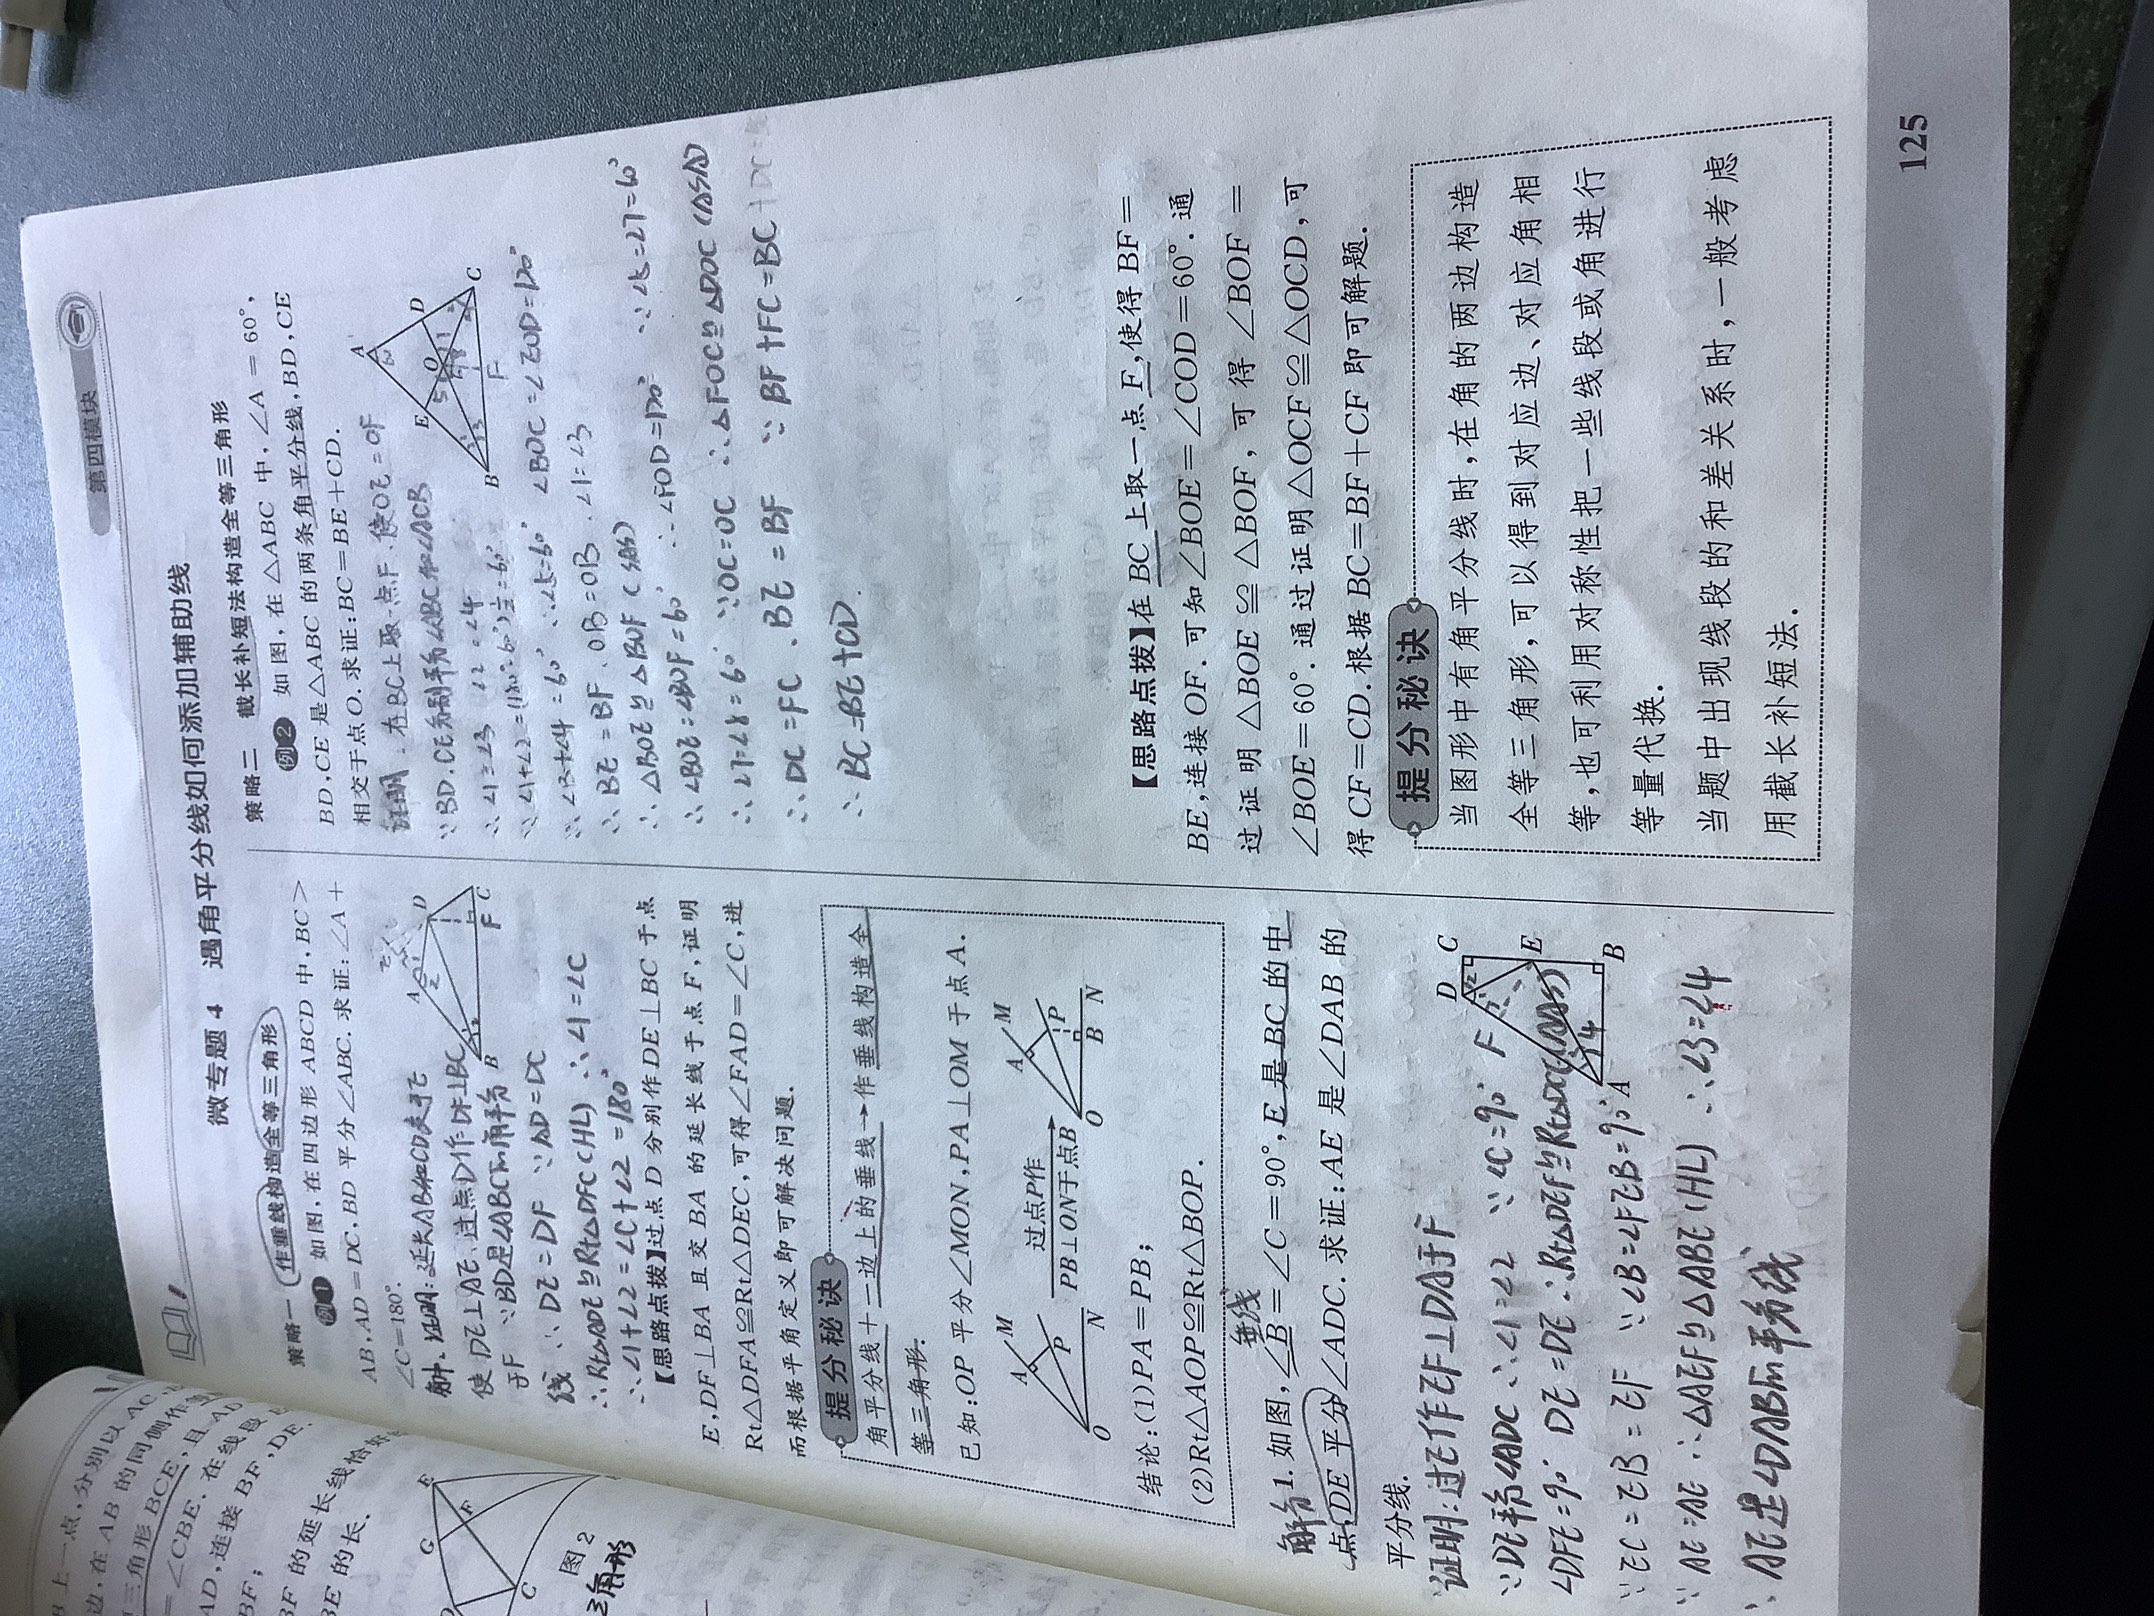 第四模块
微专题4 遇角平分线如何添加辅助线
策略一 作垂线构造全等三角形
例1 如图,在四边形ABCD中,BC>
AB,AD=DC,BD平分∠ABC.求证:∠A+
∠C=180°.
A
D
B
F
C
解:证明:延长AB和CD交于E
使DE⊥AE,过点D作DF⊥BC
于F ∵BD是∠ABC的角平分
线 ∴DE=DF ∵AD=DC
∴Rt△ADE≌Rt△DFC(HL) ∴∠1=∠C
∴∠1+∠2=∠C+∠2=180°
【思路点拨】过点D分别作DE⊥BC于点
E,DF⊥BA且交BA的延长线于点F,证明
Rt△DFA≌Rt△DEC,可得∠FAD=∠C,进
而根据平角定义即可解决问题.
提分秘诀
角平分线+一边上的垂线→作垂线构造全
等三角形.
已知:OP平分∠MON,PA⊥OM于点A.
A
M
P
O
N
过点P作
PB⊥ON于点B
A
M
P
O
B
N
结论:(1)PA=PB;
(2)Rt△AOP≌Rt△BOP.
垂线
1.如图,∠B=∠C=90°,E是BC的中
点,DE平分∠ADC.求证:AE是∠DAB的
平分线.
证明:过E作EF⊥DA于F
∵DE平分∠ADC ∴∠1=∠2 ∵∠C=90°
∠DFE=90° DE=DE ∴Rt△DEF≌Rt△DCE(AAS)
∵EC=EB=EF ∵∠B=∠FEB=90°
∵AE=AE ∴△AEF≌△ABE(HL) ∴∠3=∠4
∴AE是∠DAB的平分线
D
C
F
E
A
B
策略二 截长补短法构造全等三角形
例2 如图,在△ABC中,∠A=60°,
BD,CE是△ABC的两条角平分线,BD,CE
相交于点O.求证:BC=BE+CD.
A
E
D
O
B
F
C
证明:在BC上取点F,使OE=OF
∵BD.CE分别平分∠ABC和∠ACB
∴∠1=∠3 ∠2=∠4
∠BOC=∠EOD=120°
∴BE=BF.OB=OB.∠1=∠3
∴△BOE≌△BOF(SAS)
∴∠BOE=∠BOF=60° ∴∠FOD=120°
∴∠7=∠8=60° ∵OC=OC ∴△FOC≌△DOC(ASA)
∴DC=FC.BE=BF ∵BF+FC=BC
∴BC=BE+CD.
【思路点拨】在BC上取一点F,使得BF=
BE,连接OF.可知∠BOE=∠COD=60°.通
过证明△BOE≌△BOF,可得∠BOF=
∠BOE=60°.通过证明△OCF≌△OCD,可
得CF=CD.根据BC=BF+CF即可解题.
提分秘诀
当图形中有角平分线时,在角的两边构造
全等三角形,可以得到对应边、对应角相
等,也可利用对称性把一些线段或角进行
等量代换.
当题中出现线段的和差关系时,一般考虑
用截长补短法.
125
上一点,分别以AC,
边,在AB的同侧作
三角形BCE,且
=∠CBE.在线段
AD,连接BF,DE.
BF;
BF的延长线恰好
BE的长.
图2